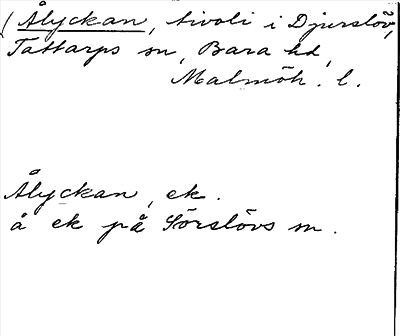 (Ålyckan, tivoli i Djurslöv,
Tottarps sn, Bara hd,
Malmöh. l.
Ålyckan, ek.
å ek på Görslövs sn.